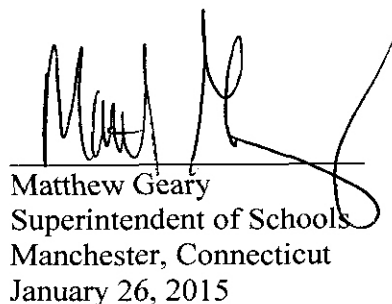 Matt Geary
Matthew Geary
Superintendent of Schools
Manchester, Connecticut
January 26, 2015